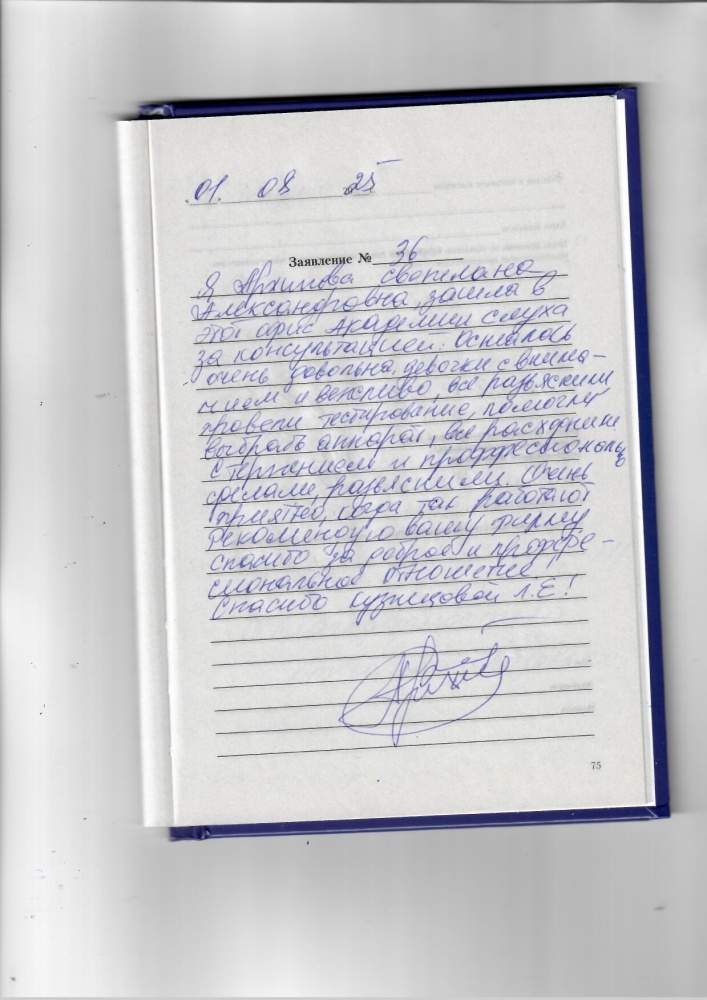 01. 08 2025
Заявление № 36
Я Архипова Светлана
Александровна, зашла в
этот офис Академии слуха
за консультацией. Осталась
очень довольна, девочки с внима-
нием и вежливо, все разъяснили
провели тестирование, помогли
выбрать аппарат, все расходники
с терпением и профессионально
сделали, разъяснили. Очень
приятно, когда так работают
Рекомендую вашу фирму
спасибо за доброе и профес-
сиональное отношение
Спасибо Кузнецовой Л.Е!
75